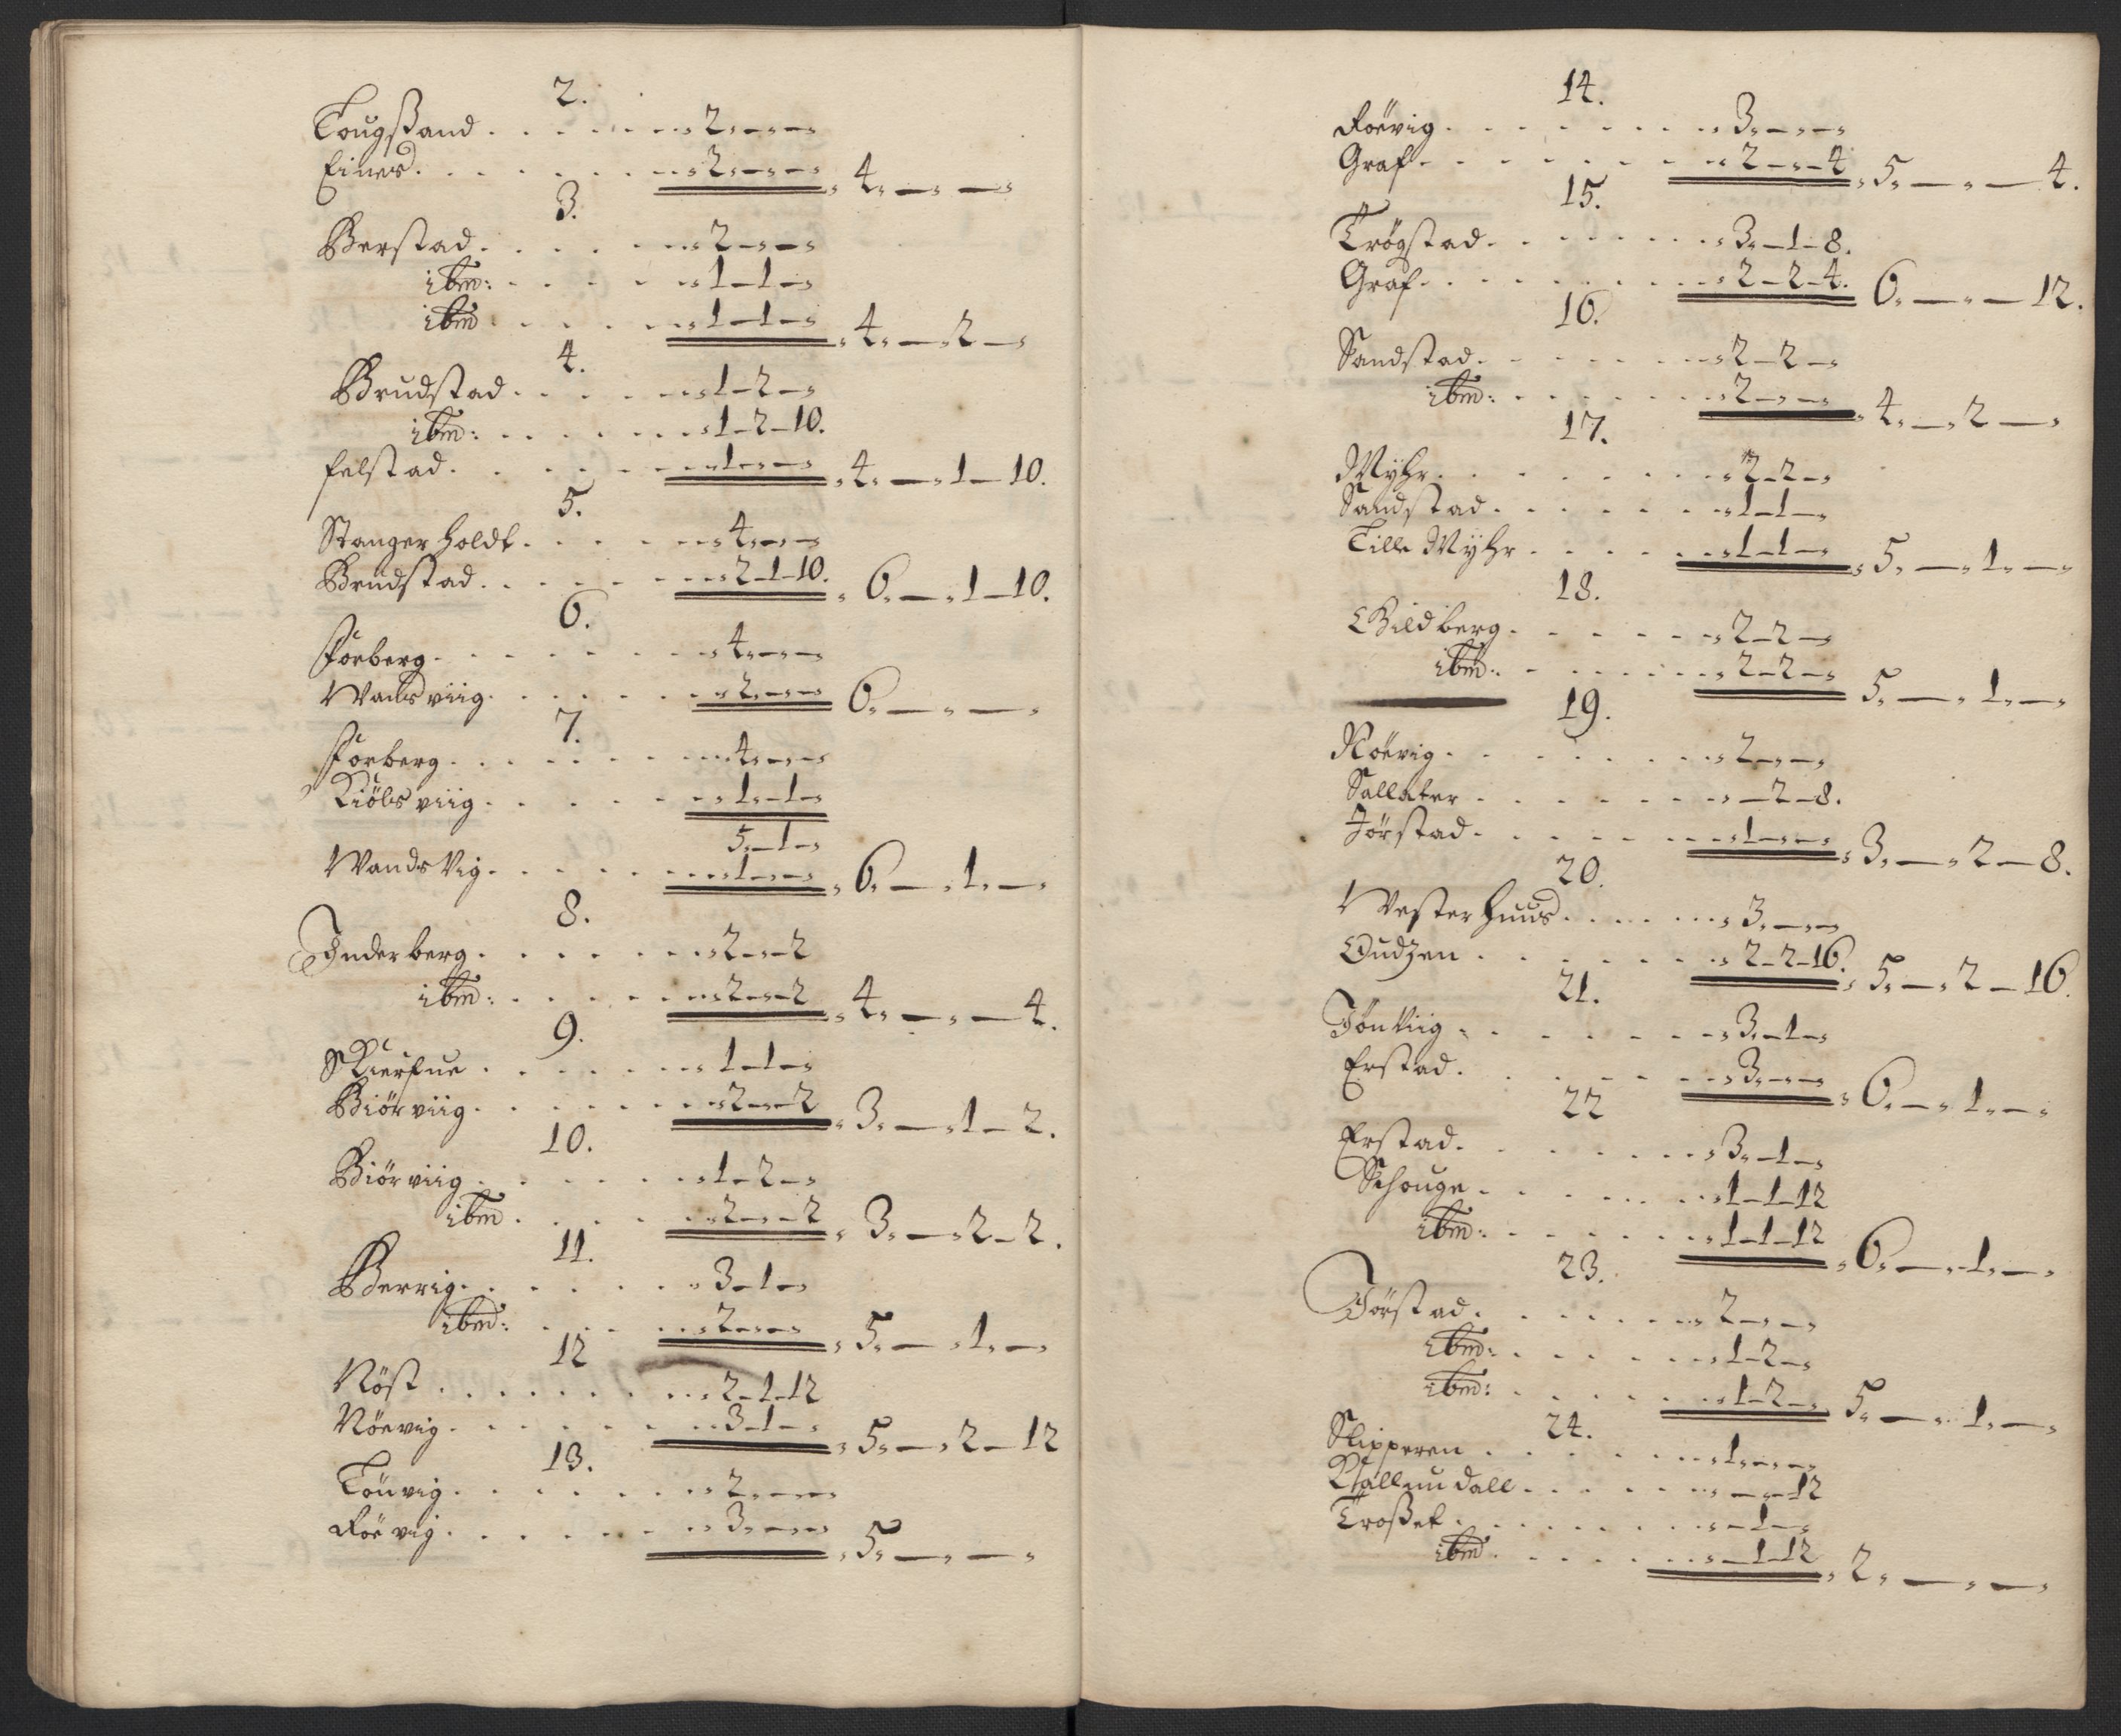 2.
Tougsand . . . . . . . 2 „ — „ — „
Eines . . . . . . . 2 „ — „ — „ 4 „ — „ — „
3.
Berstad . . . . . . 2 — „ — „
ibm: . . . . . 1 — 1 — „
ibm . . . . . 1 — 1 — „ 4 „ — „ 2 — „
4.
Brudstad . . . . . 1 — 2 — „
ibm: . . . . . . 1 — 2 — 10.
felstad . . . . . 1 „ — „ — „ 4 „ — „ 1 — 10.
5.
Stangerholdt . . . . . 4 „ — „ — „
Brudstad . . . . . 2 — 1 — 10. 6 „ — „ 1 — 10.
6.
Forberg . . . . . . 4 „ — „ — „
Wandsviig . . . . . 2 „ — „ — „ 6 „ — „ — „
7.
Forberg . . . . . . 4 „ — „ — „
Kiölsviig . . . . . 1 „ — 1 — „
5 „ — 1 — „
WandsVig . . . . . 1 — „ — „ 6 „ — „ 1 „ — „
8.
Inderberg . . . . . . 2 — „ — 2
ibm: . . . . . 2 — „ — 2 4 „ — „ — 4.
9.
Skierfue . . . . . 1 — 1 — „
Biörviig . . . . . 2 — „ — 2 3 „ — „ 1 — 2.
10.
Biörviig . . . . . 1 — 2 — „
ibm . . . . . 2 — „ — 2 3 „ — „ 2 — 2.
11.
Berrig . . . . . . 3 — 1 — „
ibm: . . . . . 2 — „ — „ 5 „ — „ 1 „ — „
12
Röst . . . . . . . 2 — 1 — 12
Röevig . . . . . . 3 — 1 — „ 5 „ — „ 2 — 12
13.
Töüvig . . . . . . 2 „ — „ — „
Roëvig . . . . . . 3 „ — „ — „ 5 „ — „ — „
14.
Roëvig . . . . . . . 3 „ — „ — „
Graf . . . . . . . 2 — „ — 4 5 „ — „ — 4.
15.
Trögstad . . . . . . . 3 „ — 1 — 8.
Graf . . . . . . . 2 — 2 — 4. 6 „ — „ — 12.
16.
Sandstad . . . . . . 2 — 2 — „
ibm: . . . . . . 2 — „ — „ 4 „ — „ 2 — „
17.
Myhr . . . . . . . 2 — 2 — „
Sandstad . . . . . . 1 — 1 — „
Lille Myhr . . . . . . 1 — 1 — „ 5 „ — „ 1 „ — „
18.
Gildberg . . . . . . 2 — 2 — „
ibm: . . . . . . 2 — 2 — „ 5 „ — „ 1 „ — „
19.
Roëvig . . . . . . . 2 — „ — „
Sallater . . . . . . . — 2 — 8.
Jörstad . . . . . . . 1 — „ — „ 3 „ — „ 2 — 8.
20.
Westerhuus . . . . . . 3 „ — „ — „
Oudzen . . . . . . 2 — 2 — 16. 5 „ — „ 2 — 16.
21.
Jönviig . . . . . . . 3 „ — 1 — „
Erstad . . . . . . 3 „ — „ — „ 6 „ — „ 1 „ — „
22
Erstad . . . . . . . 3 „ — 1 — „
Schouge . . . . . . 1 — 1 — 12
ibm: . . . . . . 1 — 1 — 12 6 „ — „ 1 „ — „
23.
Jörstad . . . . . . . 2 — „ — „
ibm: . . . . . . 1 — 2 — „
ibm: . . . . . . 1 — 2 — „ 5 „ — „ 1 „ — „
24.
Slipperen . . . . . . 1 „ — „ — „
Kallundall . . . . . . „ — „ — 12
Trosset . . . . . . . — 1 — „
ibm . . . . . . — 1 — 12 2 „ — „ — „